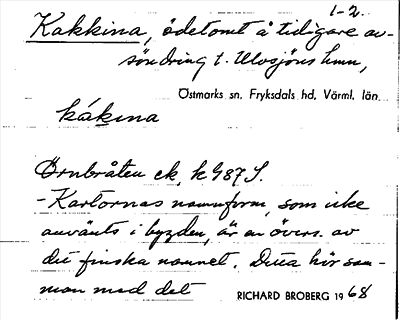 1-2.
Kakkina, ödetomt å tidigare av-
söndring t. Ulvsjöns hmn,
Östmarks sn. Fryksdals hd. Värml. län.
kákina
Örnbråten ek, k 987 S.
- Kartornas namnform, som icke
använts i bygden, är en övers. av
det finska namnet. Detta hör sam-
man med det
RICHARD BROBERG 1968